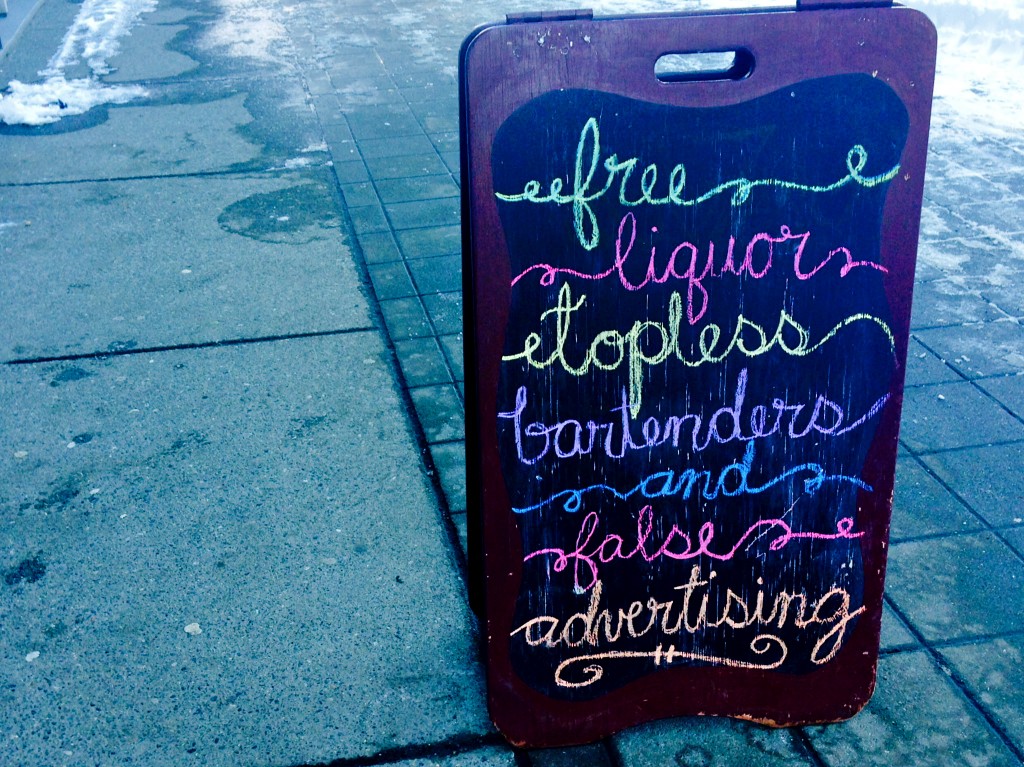 free
liquor
topless
bartenders
and
false
advertising